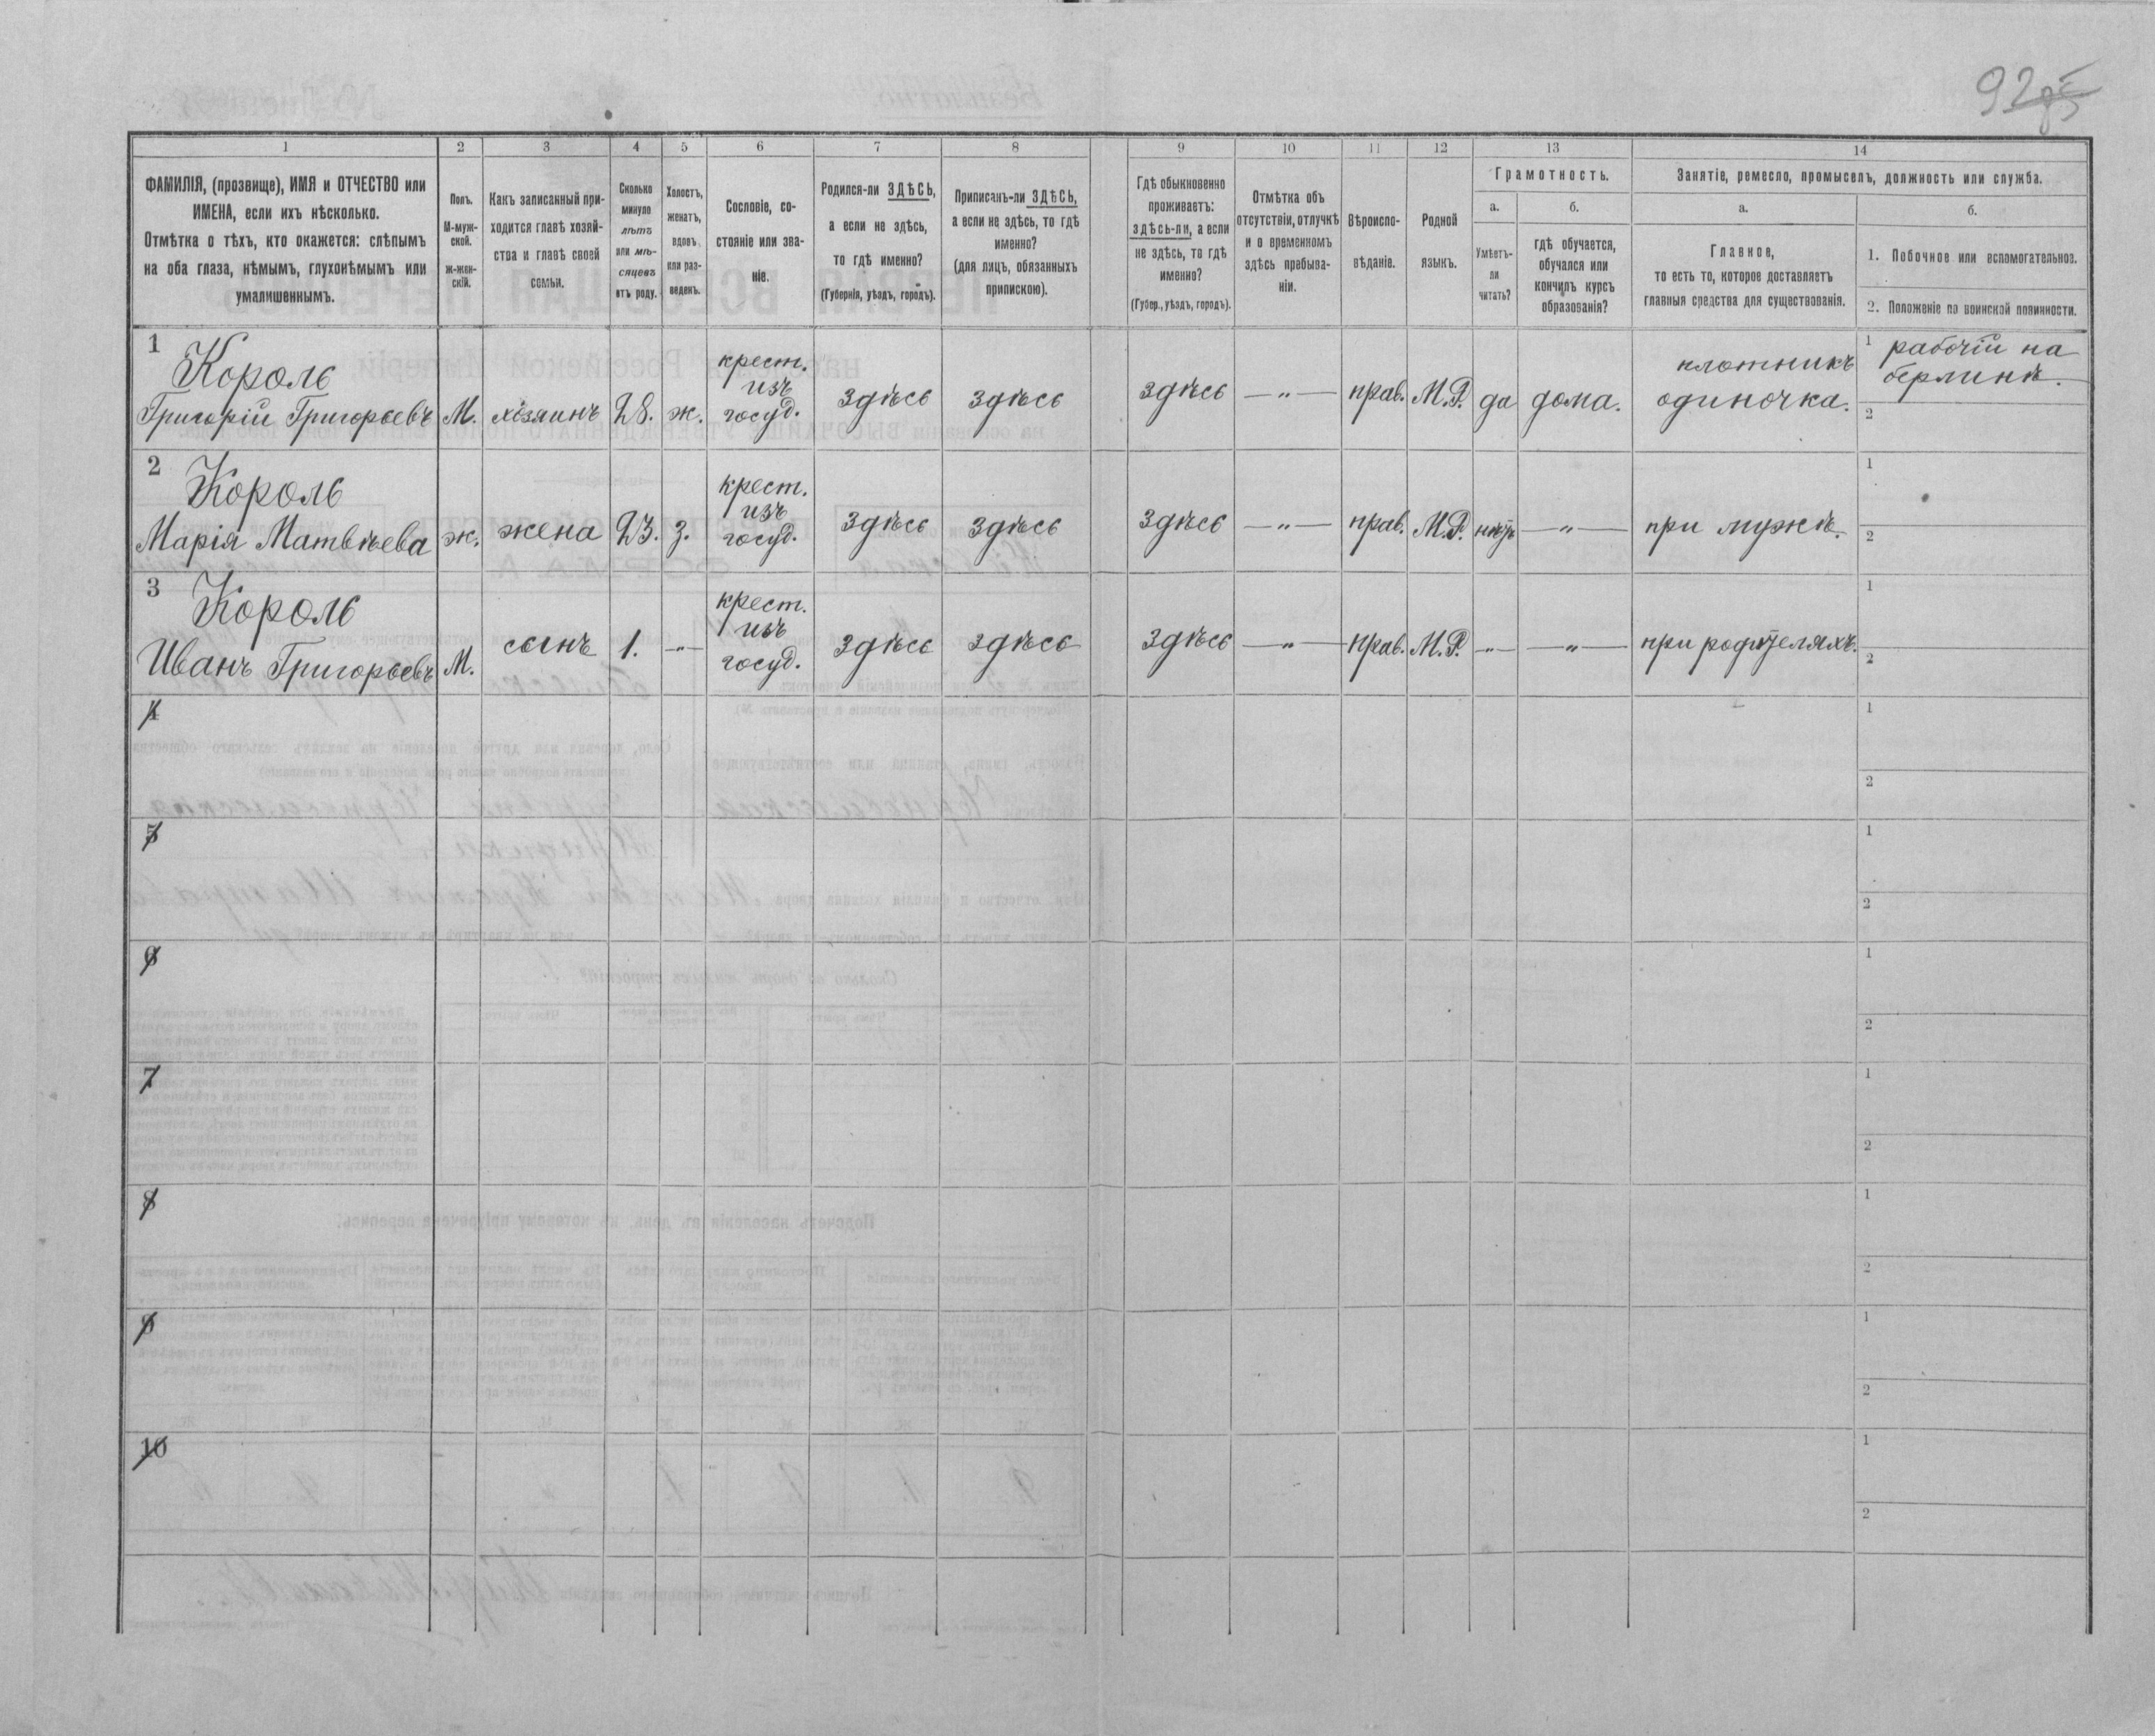 92 85
1 2 3 4 5 6 7 8 9 10 11 12 13 14
ФАМИЛІЯ, (прозвище), ИМЯ и ОТЧЕСТВО или
ИМЕНА, если ихъ нѣсколько.
Отмѣтка о тѣхъ, кто окажется: слѣпымъ
на оба глаза, нѣмымъ, глухонѣмымъ или
умалишеннымъ.
Полъ.
М-муж-
ской.
ж-жен-
скій.
Какъ записанный при-
ходится главѣ хозяй-
ства и главѣ своей
семьи.
Сколько
минуло
лѣтъ
или мѣ-
сяцевъ
отъ роду.
Холостъ,
женатъ,
вдовъ
или раз-
веденъ.
Сословіе, со-
стояніе или зва-
ніе.
Родился-ли ЗДѢСЬ,
а если не здѣсь,
то гдѣ именно?
(Губернія, уѣздъ, городъ).
Приписанъ-ли ЗДѢСЬ,
а если не здѣсь, то гдѣ
именно?
(для лицъ, обязанныхъ
припискою).
Гдѣ обыкновенно
проживаетъ:
здѣсь-ли, а если
не здѣсь, то гдѣ
именно?
(Губер., уѣздъ, городъ).
Отмѣтка объ
отсутствіи, отлучкѣ
и о временномъ
здѣсь пребыва-
ніи.
Вѣроиспо-
вѣданіе.
Родной
языкъ.
Грамотность.
а.
Умѣетъ-
ли
читать?
б.
гдѣ обучается,
обучался или
кончилъ курсъ
образованія?
Занятіе, ремесло, промыселъ, должность или служба.
а.
Главное,
то есть то, которое доставляетъ
главныя средства для существованія.
б.
1. Побочное или вспомогательное.
2. Положеніе по воинской повинности.
1 Король
Григорій Григорьевъ М. хозяинъ 28. ж. крест.
изъ
госуд. здѣсь здѣсь здѣсь — „ — прав. М.Р. да дома. плотникъ
одиночка. 1 рабочій на
берлинѣ.
2
2 Король
Марія Матвѣева ж. жена 23. з. крест.
изъ
госуд. здѣсь здѣсь здѣсь — „ — прав. М.Р. нѣтъ — „ — при мужѣ. 1
2
3 Король
Иванъ Григорьевъ М. сынъ 1. — „ — крест.
изъ
госуд. здѣсь здѣсь здѣсь — „ — прав. М.Р. — „ — — „ — при родителяхъ. 1
2
4 1
2
5 1
2
6 1
2
7 1
2
8 1
2
9 1
2
10 1
2